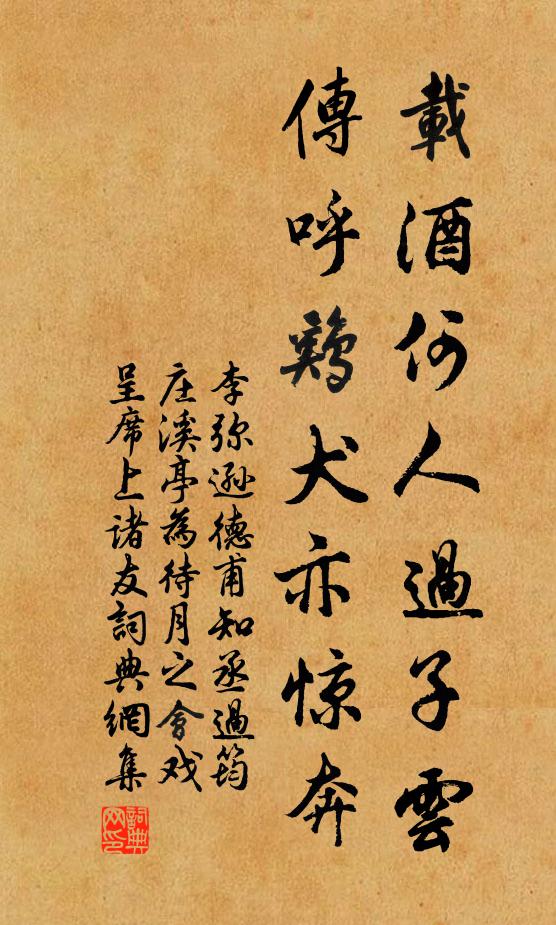 載酒何人過子雲
傳呼鷄犬亦惊奔
李弥遜德甫知丞過筠
庄溪亭為待月之會戏
呈席上诸友詞典網集
詞典网印